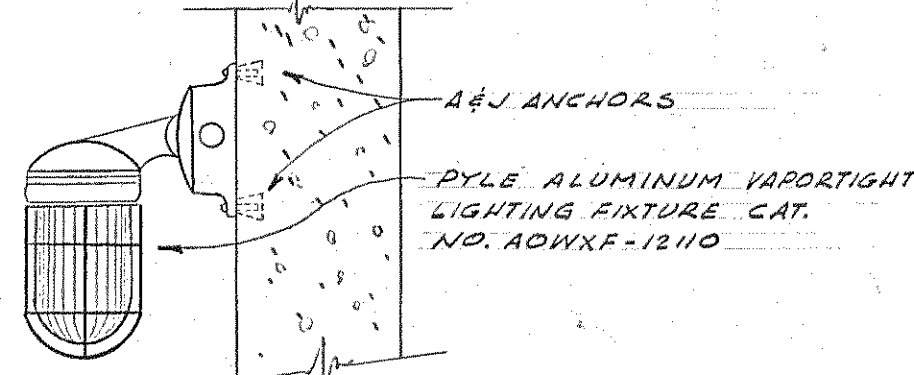 A&J ANCHORS
PYLE ALUMINUM VAPORTIGHT
LIGHTING FIXTURE CAT.
NO. AOWXF-12110